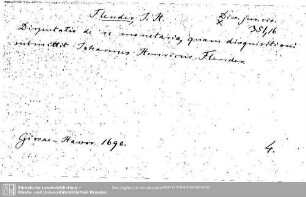 Flender, J. H.
Diss. jur. civ.
351,16
Disputatio de re monetaria, quam disquisitioni
submittit Johannes Henricus Flender
Gissae-Hassor. 1690.
4.
Sächsische Landesbibliothek -
Staats- und Universitätsbibliothek Dresden